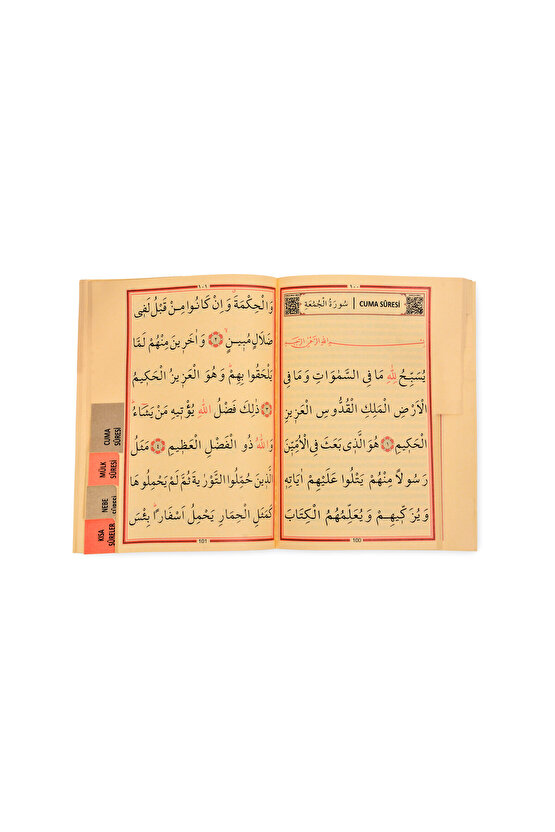 ١٠٠
سُورَةُ الْجُمُعَةِ CUMA SÛRESİ
يُسَبِّحُ لِلّٰهِ مَا فِى السَّمٰوَاتِ وَمَا فِى
الْاَرْضِ الْمَلِكِ الْقُدُّوسِ الْعَزِيزِ
الْحَكِيمِ ١ هُوَ الَّذِى بَعَثَ فِى الْاُمِّيّٖنَ
رَسُولاً مِنْهُمْ يَتْلُوا عَلَيْهِمْ اٰيَاتِهٖ
وَيُزَكّٖيهِمْ وَيُعَلِّمُهُمُ الْكِتَابَ
100
١٠١
وَالْحِكْمَةَ وَاِنْ كَانُوا مِنْ قَبْلُ لَفٖى
ضَلَالٍ مُبٖينٍ ٢ وَاٰخَرٖينَ مِنْهُمْ لَمَّا
يَلْحَقُوا بِهِمْ وَهُوَ الْعَزٖيزُ الْحَكٖيمُ
٣ ذٰلِكَ فَضْلُ اللّٰهِ يُؤْتٖيهِ مَنْ يَشَاءُ
وَاللّٰهُ ذُو الْفَضْلِ الْعَظٖيمِ ٤ مَثَلُ
الَّذٖينَ حُمِّلُوا التَّوْرٰيةَ ثُمَّ لَمْ يَحْمِلُوهَا
كَمَثَلِ الْحِمَارِ يَحْمِلُ اَسْفَاراً بِئْسَ
101
CUMA
SÛRESİ
MÜLK
SÛRESİ
NEBE
KISA
SÛRELER